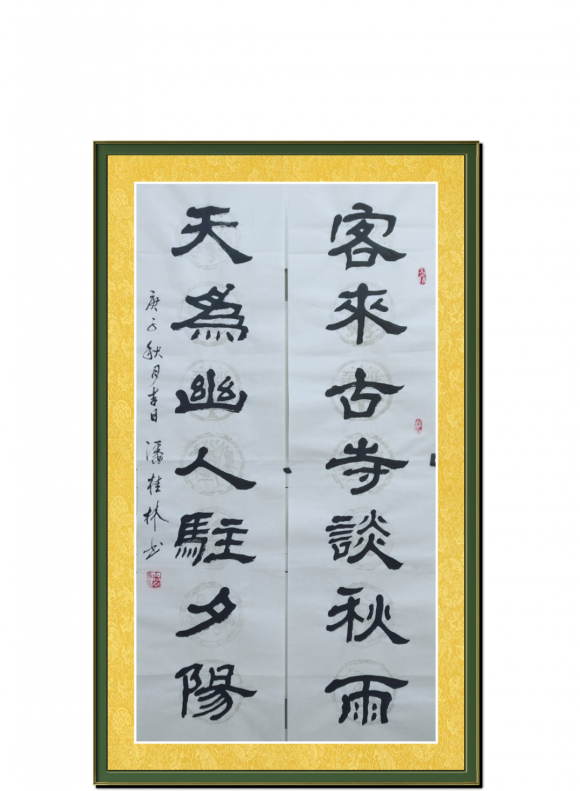 客來古寺談秋雨
天為幽人駐夕陽
庚子秋月吉日潘桂林书